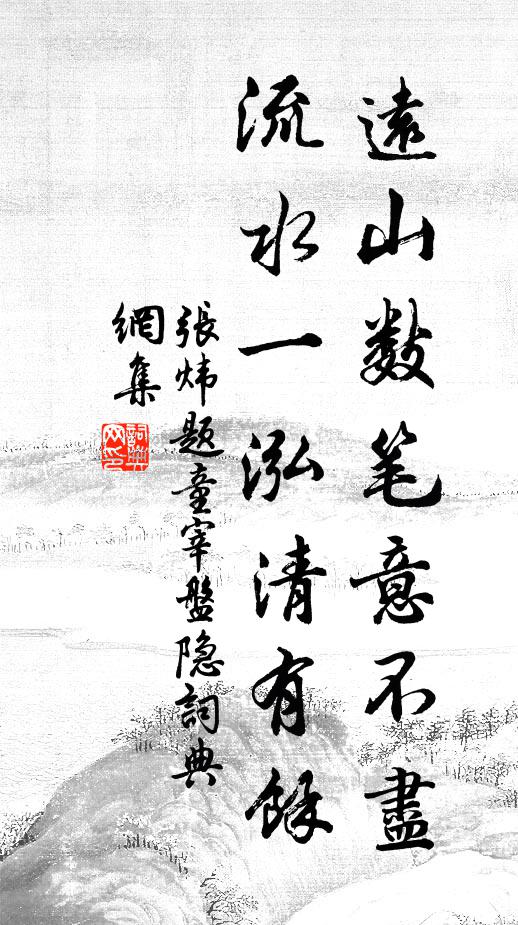 遠山数笔意不盡
流水一泓清有餘
張炜題童宰盤隐詞典
網集